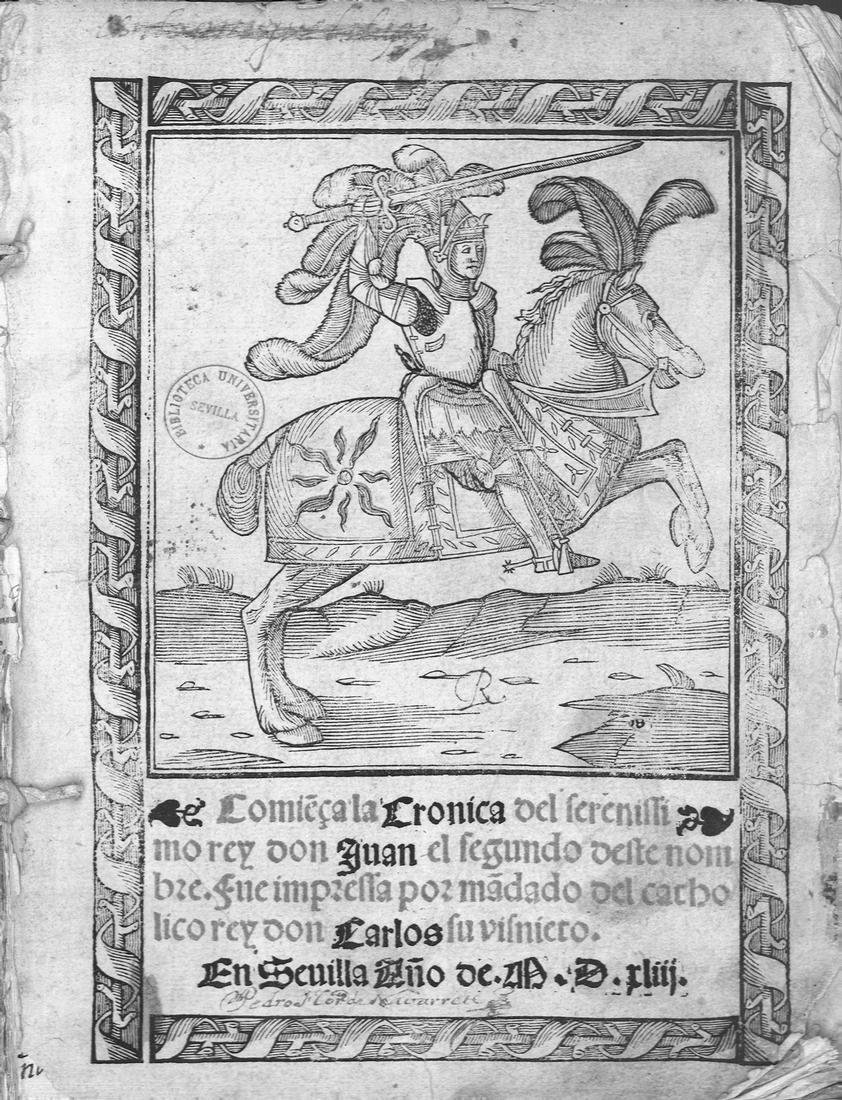 BIBLIOTECA UNIVERSITARIA
SEVILLA
Comiēça la Cronica del serenissi
mo rey don Juan el segundo deste nom
bre. Fue impressa por mādado del catho
lico rey don Carlos su visnieto.
En Seuilla Año de. M. D. xliij.
Pedro